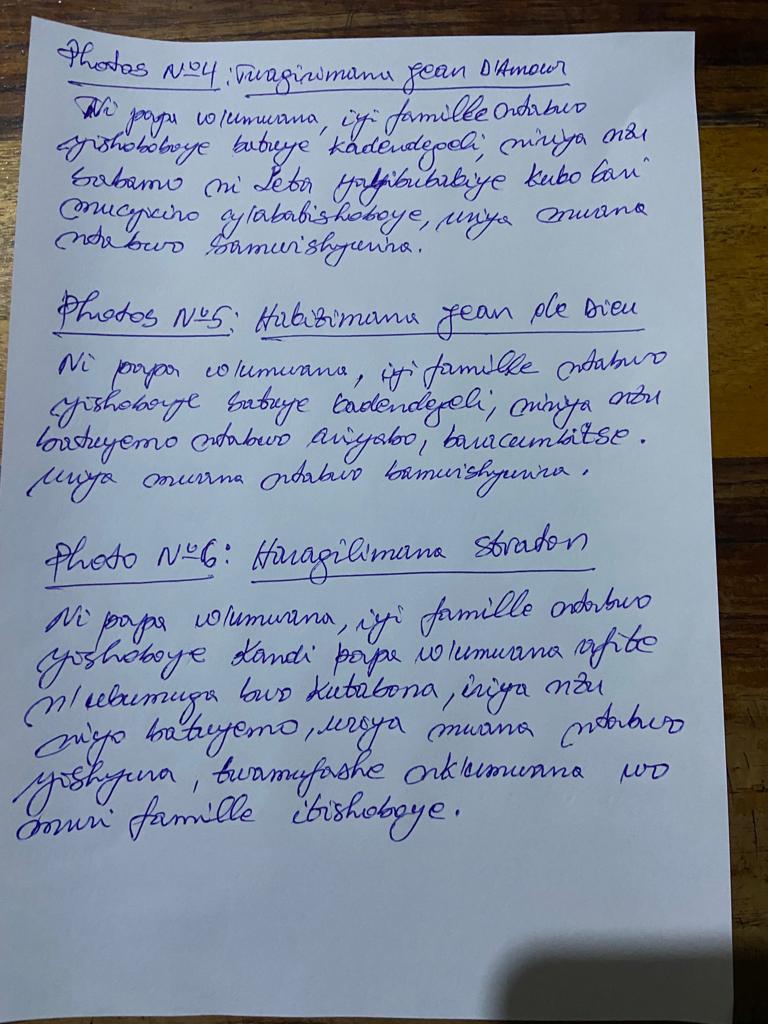 Photos Nº4: Twagirimana Jean D'Amour
Ni papa w'umwana, iyi famille ntabwo
yishoboboye batuye Kadendegeli, niriya nzu
babamo ni Leta yayibubakiye kubo bari
mucyiciro cy'ababishoboye, uriya mwana
ntabwo bamwishyurira.
Photos Nº5: Habizimana Jean de Dieu
Ni papa w'umwana, iyi famille ntabwo
yishoboye batuye kadendegeli, niriya nzu
batuyemo ntabwo ariyabo, baracumbitse.
uriya mwana ntabwo bamwishyurira.
Photo Nº6: Haragilimana Straton
Ni papa w'umwana, iyi famille ntabwo
yishoboye Kandi papa w'umwana afite
n'ubumuga bwo kutabona, iriya nzu
niyo batuyemo, uriya mwana ntabwo
yishyura, twamufashe nk'umwana wo
muri famille itishoboye.